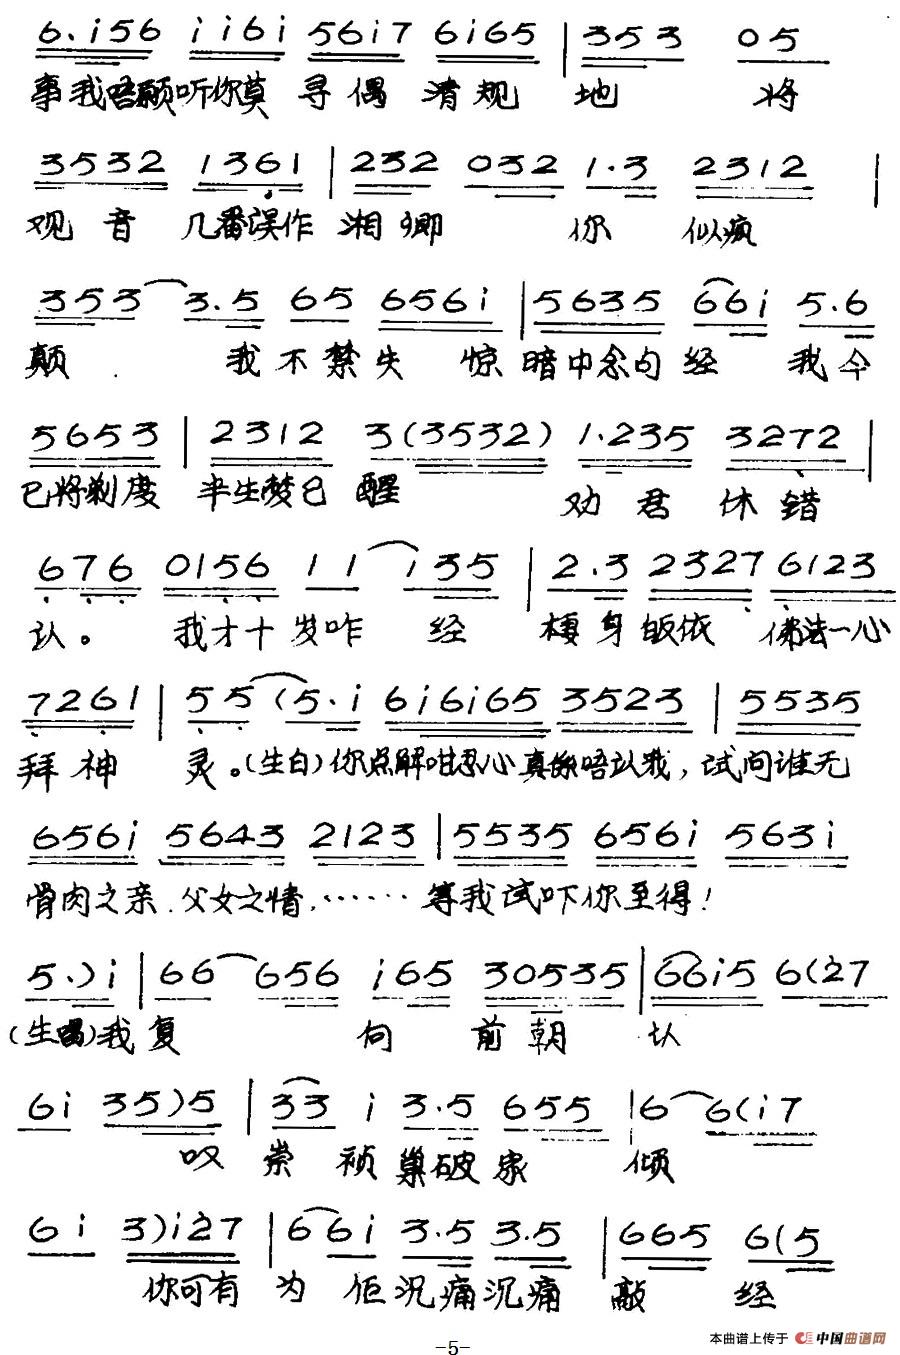 6.i56 i i6i 56i7 6i65 | 353 05
事我唔愿听你莫 寻 偶 清 规 地 将
3532 1361 | 232 032 1.3 2312 |
观 音 几番误作 湘 卿 你 似疯
353 3.5 65 656i | 5635 66i 5.6
颠 . 我 不 禁 失 惊 暗中念句 经 我 今
5653 | 2312 3(3532) 1.235 3272 |
已将剃度 半生梦已 醒 劝 君 休 错
676 0156 11 135 | 2.3 2327 6123
认。 我才十 岁咋 经 棲 身 皈依 佛法一心
7261 | 55 (5.i 6i6i65 3523 | 5535
拜 神 灵。(生白)你点解咁忍心真係唔认我，试问谁无
656i 5643 2123 | 5535 656i 563i
骨肉之亲.父女之情.……等我试吓你至得！
5.) i | 66 656 i65 30535 | 66i5 6(27
(生唱)我 复 向 前 朝 认
6i 35)5 | 33 i 3.5 655 | 6 6(i7
叹 崇 祯 巢破 家 倾
6i 3)i27 | 66i 3.5 3.5 | 665 6(5
你可有 为 佢 沉痛 沉痛 敲 经
-5-
本曲谱上传于 中国曲谱网